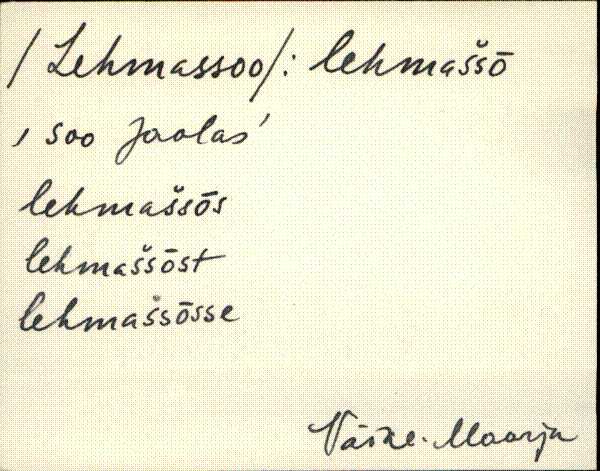 /Lehmassoo/: lehmaš̆sō
‚ soo Jaolas'
lehmaš̆sōs
lehmaš̆sōst
lehmaš̆sōsse
Väike-Maarja